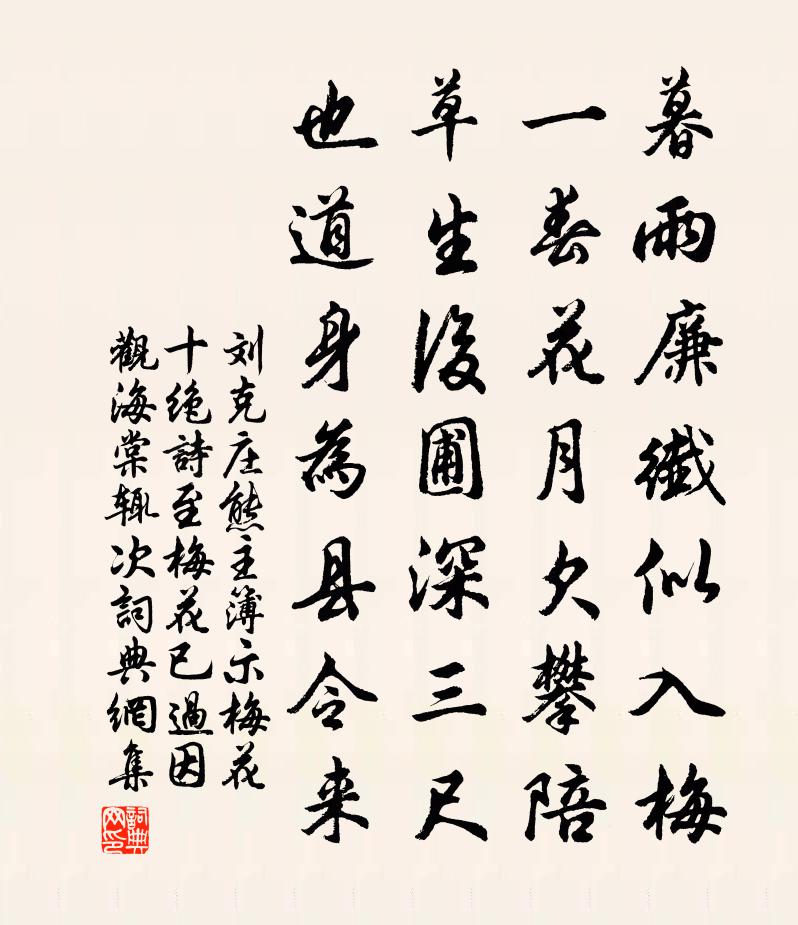 暮雨廉纖似入梅
一春花月欠攀陪
草生後圃深三尺
也道身為县令来
刘克庄熊主簿示梅花
十絶詩至梅花已過因
觀海棠辄次詞典網集
詞典網印